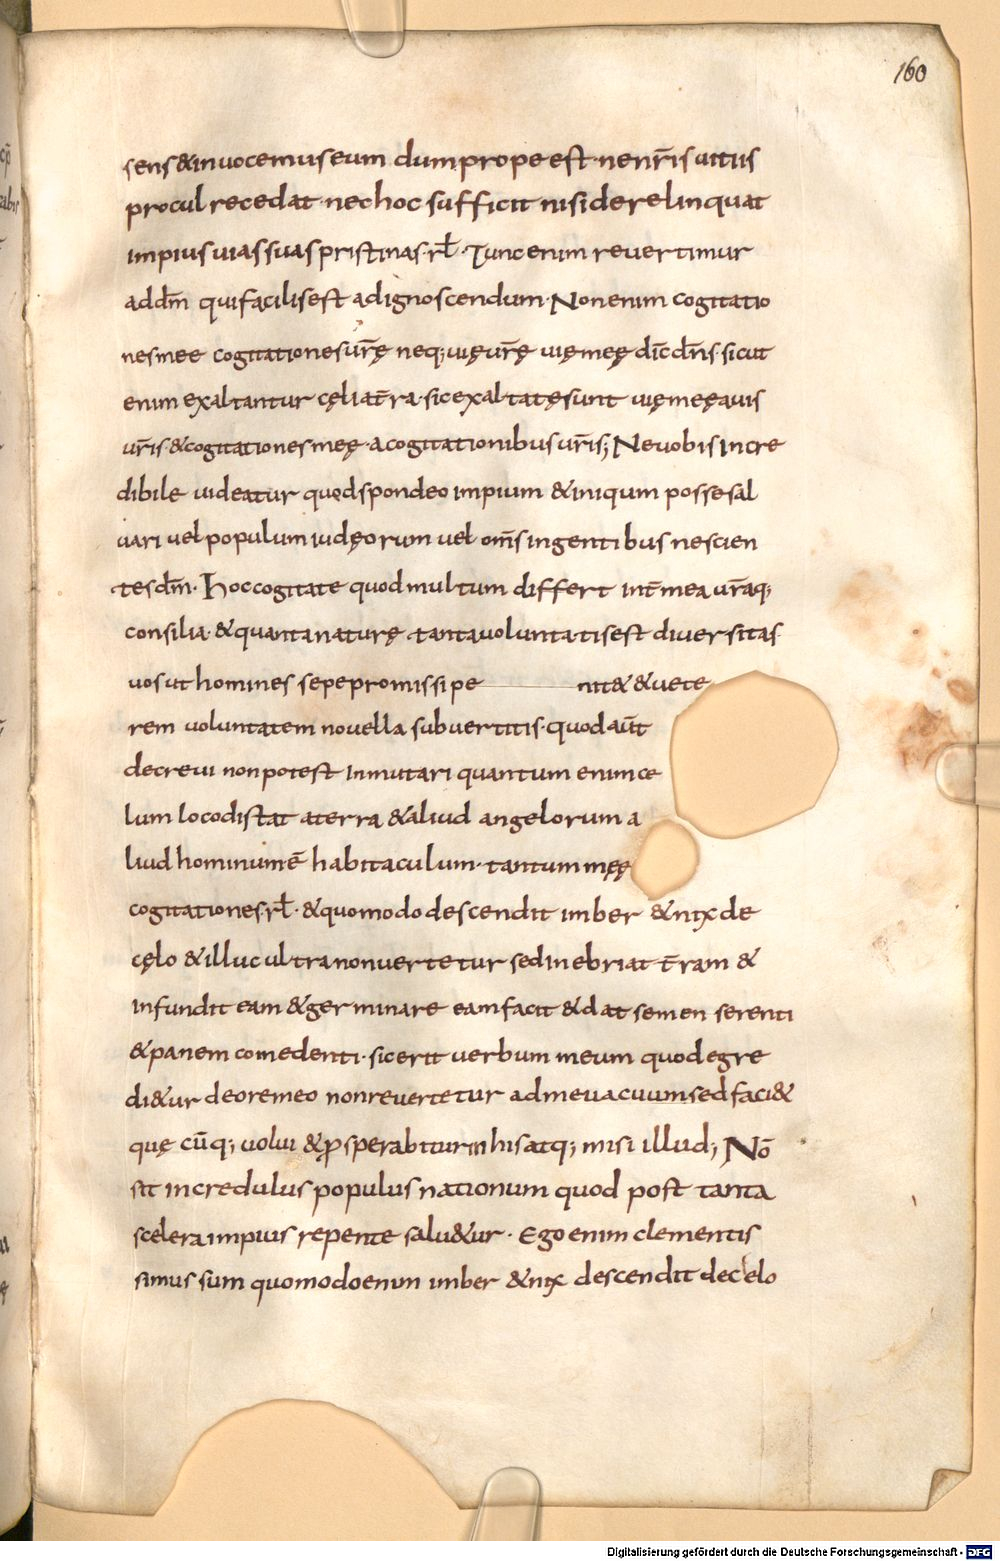 160
sens &inuocemus eum dum prope est· ne nr̄is uitiis
procul recedat· nec hoc sufficit nisi derelinquat
impius uias suas pristinas·rł· Tunc enim reuertimur
ad dm̄ qui facilis est ad ignoscendum· Non enim cogitatio
nes mee cogitationes ur̄ę neq; uię ur̄ę uię meę dīc dn̄s· sicut
enim exaltantur cęli a t̄ra· sic exaltatę sunt uię meę a uiis
ur̄is· &cogitationes meę· a cogitationibus ur̄is; Ne uobis incre
dibile uideatur quod spondeo impium &iniqum posse sal
uari uel populum iudęorum uel om̄s in gentibus nescien
tes dm̄· Hoc cogitate quod multum differt int̄ mea ur̄aq;
consilia· &quanta naturę tanta uoluntatis est diuersitas
uos ut homines sepe promissi pe nit& &uete
rem uoluntatem nouella subuertitis· quod aūt
decreui non potest inmutari quantum enim ce
lum loco distat a terra &aliud angelorum a
liud hominum ē habitaculum· tantum meę
cogitationes·rł· &quomodo descendit imber &nix de
cęlo &illuc ultra non uertetur sed inebriat t̄ram &
infundit eam &germinare eam facit &dat semen serenti
&panem comedenti· sic erit uerbum meum quod egre
di&ur de ore meo non reuertetur ad me uacuum sed faci&
quę cūq; uolui &ꝓsperabitur in his atq; misi illud; Nō
sit incredulus populus nationum quod post tanta
scelera impius repente salu&ur· Ego enim clementis
simus sum quomodo enim imber &nix descendit de celo
Digitalisierung gefördert durch die Deutsche Forschungsgemeinschaft - DFG